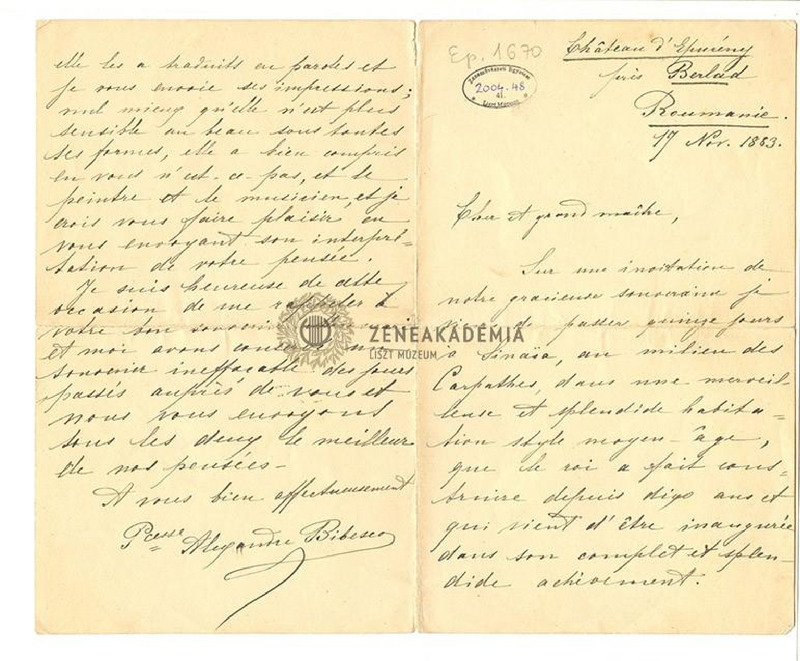 Ep. 1670
Zeneművészeti Egyetem
2004.48
41.
Liszt Múzeum
Château d'Epurény
près Berlad
Roumanie.
17 Nov. 1883.
Cher et grand maître,
Sur une invitation de
notre gracieuse souveraine je
viens de passer quinze jours
à Sinaïa, au milieu des
Carpathes, dans une merveil-
leuse et splendide habita-
tion style moyen-âge,
que le roi a fait cons-
truire depuis dix ans et
qui vient d'être inaugurée
dans son complet et splen-
dide achèvement.
elle les a traduits en paroles et
je vous envoie ses impressions;
nul mieux qu'elle n'est plus
sensible au beau sous toutes
ses formes, elle a bien compris
en vous n'est-ce-pas, et le
peintre et le musicien, et je
crois vous faire plaisir en
vous envoyant son interpré-
tation de votre pensée.
Je suis heureuse de cette
occasion de me rappeler à
votre bon souvenir
et moi avons
souvenir ineffaçable des jours
passés auprès de vous et
nous vous envoyons
tous les deux le meilleur
de nos pensées-
A vous bien affectueusement
Pcesse Alexandre Bibesco
ZENEAKADÉMIA
LISZT MÚZEUM